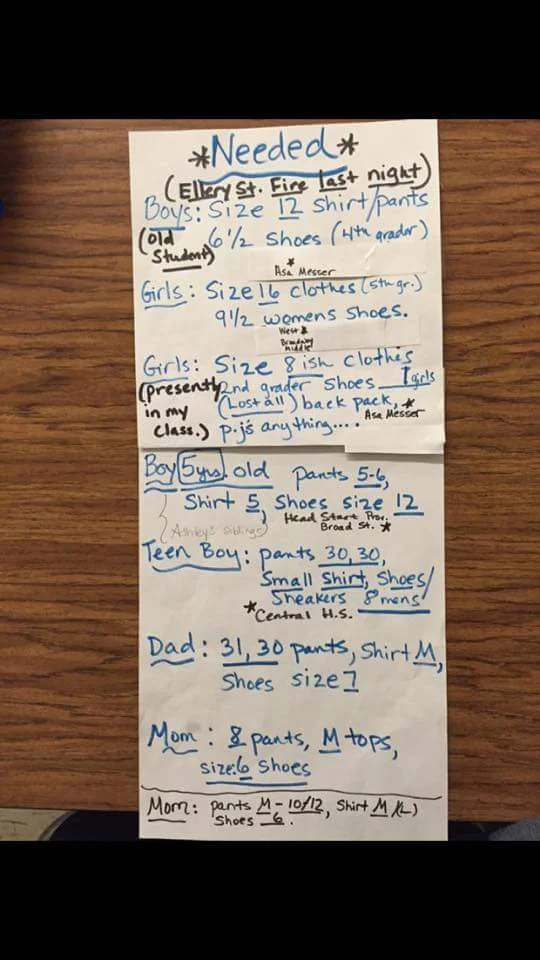 *Needed*
(Ellery St. Fire last night)
Boys: Size 12 shirt/pants
(old Student) 6 1/2 Shoes (4th grader)
* Asa Messer
Girls: Size 16 clothes (5th gr.)
9 1/2 womens shoes.
West *
Broadway
Middle
Girls: Size 8 ish clothes
(presently 2nd grader Shoes 1 girls
in my (Lost all) back pack, *
class.) p.j's anything.... Asa Messer
Boy 5yrs. old pants 5-6,
Shirt 5, Shoes size 12
Head Start Pro.
Broad St. *
(Ashley's siblings)
Teen Boy: pants 30, 30,
Small Shirt, Shoes/
Sneakers 8 mens
*Central H.S.
Dad: 31, 30 pants, Shirt M,
Shoes size 7
Mom: 8 pants, M tops,
size: 6 Shoes
Mom: pants M - 10/12, Shirt M (L)
Shoes 6.